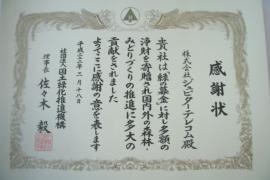 感謝状
株式会社ジュピターテレコム殿
貴社は「緑の募金」に対し多額の
浄財を寄贈され国内外の森林・
みどりづくりの推進に多大の
貢献をされました
よってここに感謝の意を表します
平成二十三年二月十八日
社団法人国土緑化推進機構
理事長 佐々木 毅